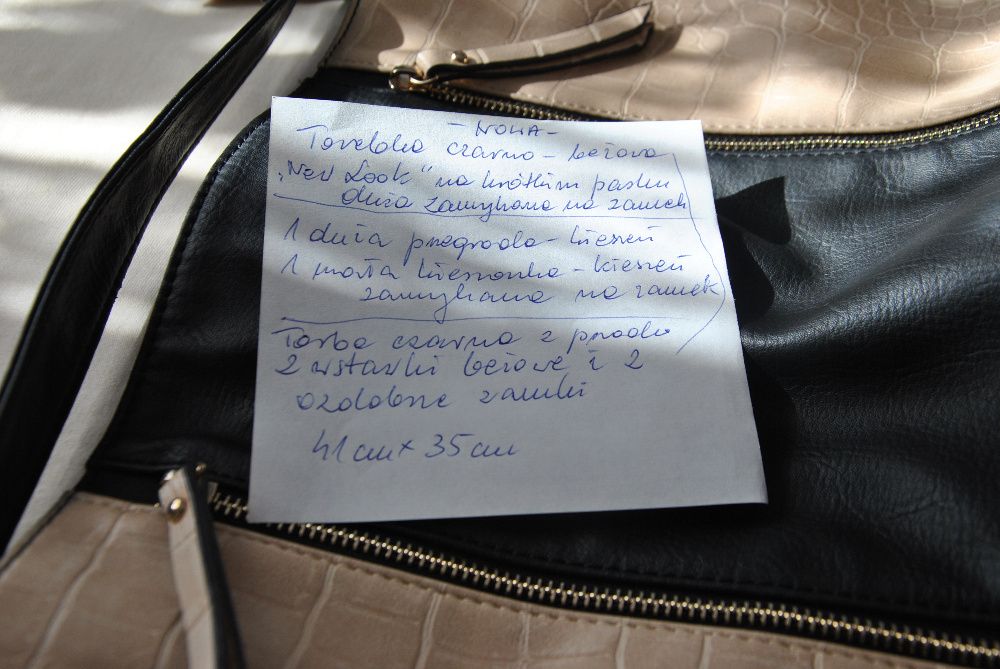 - NOWA -
Torebka czarno - beżowa
„New Look" na krótkim pasku
duża zamykana na zamek
1 duża przegroda - kieszeń
1 mała kieszonka - kieszeń
zamykana na zamek
Torba czarna z przodu
2 wstawki beżowe i 2
ozdobne zamki
41 cm x 35 cm